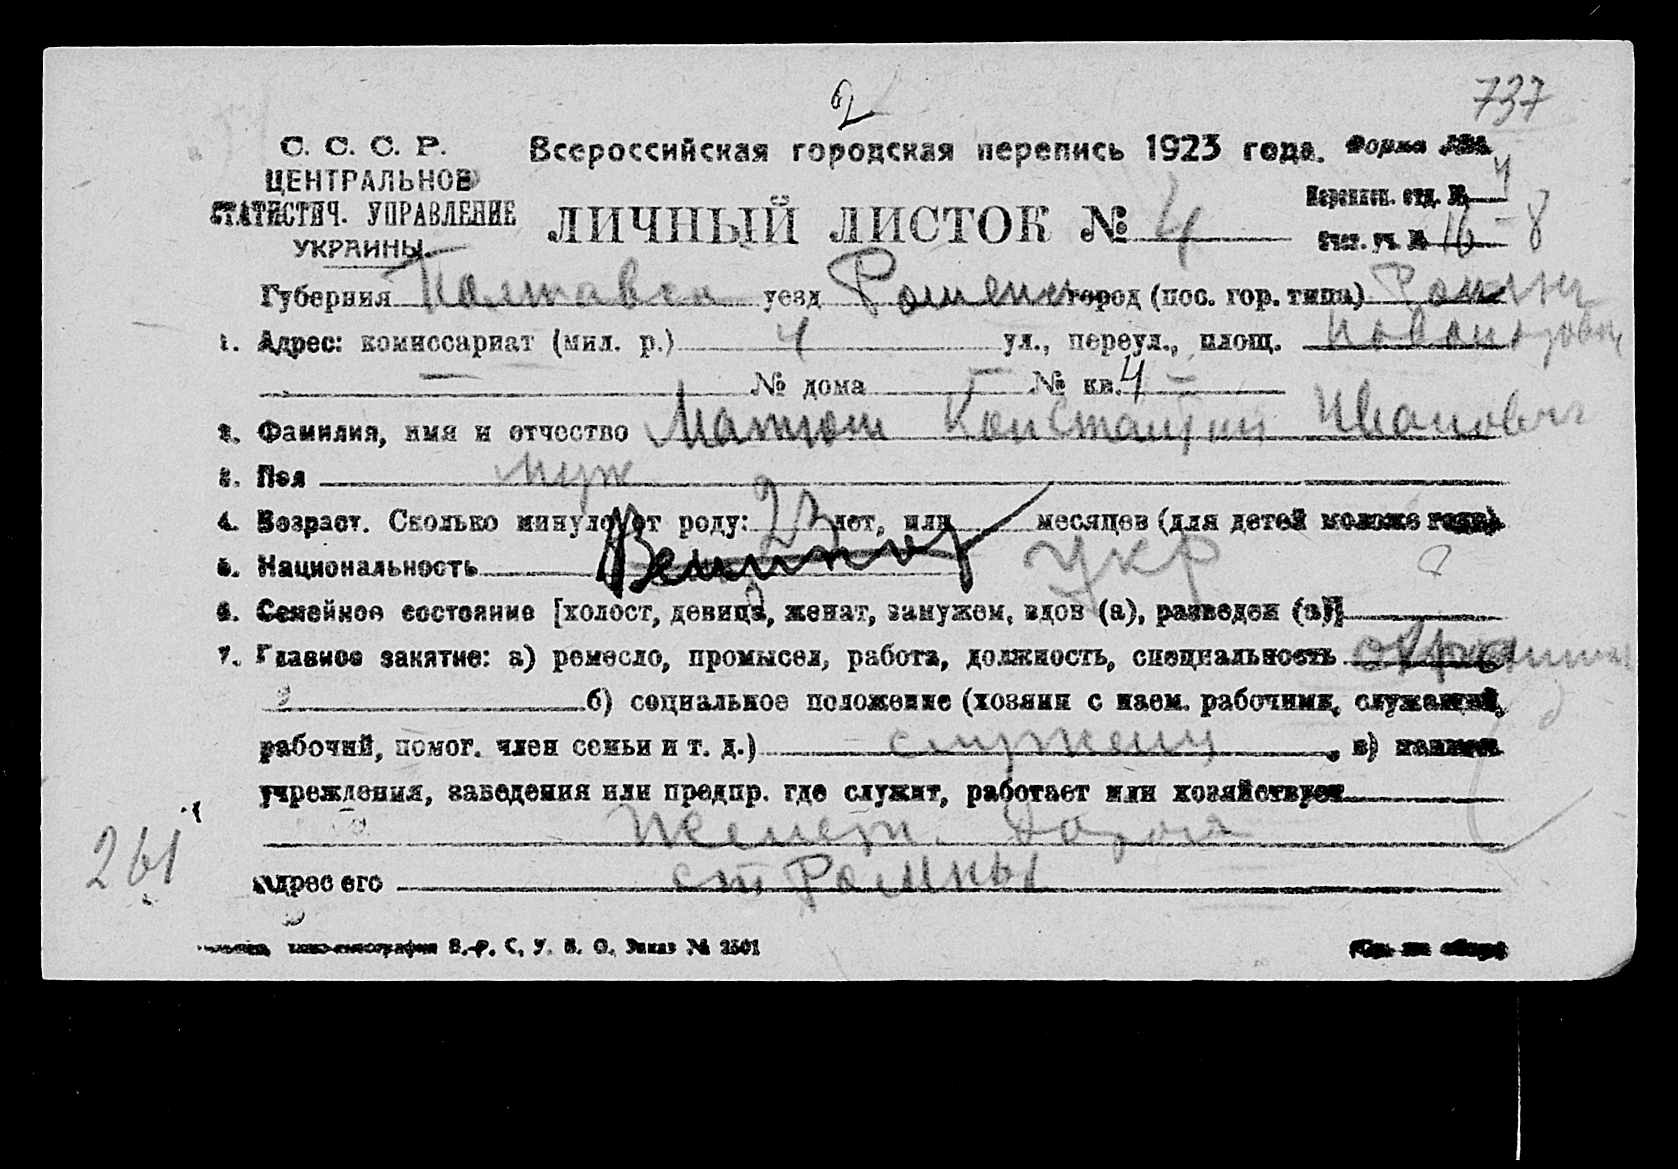 2
737
С. С. С. Р. Всероссийская городская перепись 1923 года. Форма
ЦЕНТРАЛЬНОЕ
СТАТИСТИЧ. УПРАВЛЕНИЕ
УКРАИНЫ.
ЛИЧНЫЙ ЛИСТОК № 4
Переписн. отд. № 4
Счет. уч. № 16-8
Губерния Полтавск уезд Роменск город (пос. гор. типа) Ромны
1. Адрес: комиссариат (мил. р.) 4 ул., переул., площ.
№ дома № кв. 4
2. Фамилия, имя и отчество Матюш Константин Иванович
3. Пол муж
4. Возраст. Сколько минуло от роду: 23 лет, или месяцев (для детей моложе года)
5. Национальность укр
6. Семейное состояние [холост, девица, женат, замужем, вдов (а), разведен (а)]
7. Главное занятие: а) ремесло, промысел, работа, должность, специальность
б) социальное положение (хозяин с наем. рабочими, служащий,
рабочий, помог. член семьи и т. д.) служащ, в) наимен
учреждения, заведения или предпр. где служит, работает или хозяйствует
Железн. Дорога
261
Адрес его ст Ромны
В.-Р. С. У. В. О. Заказ № 2501